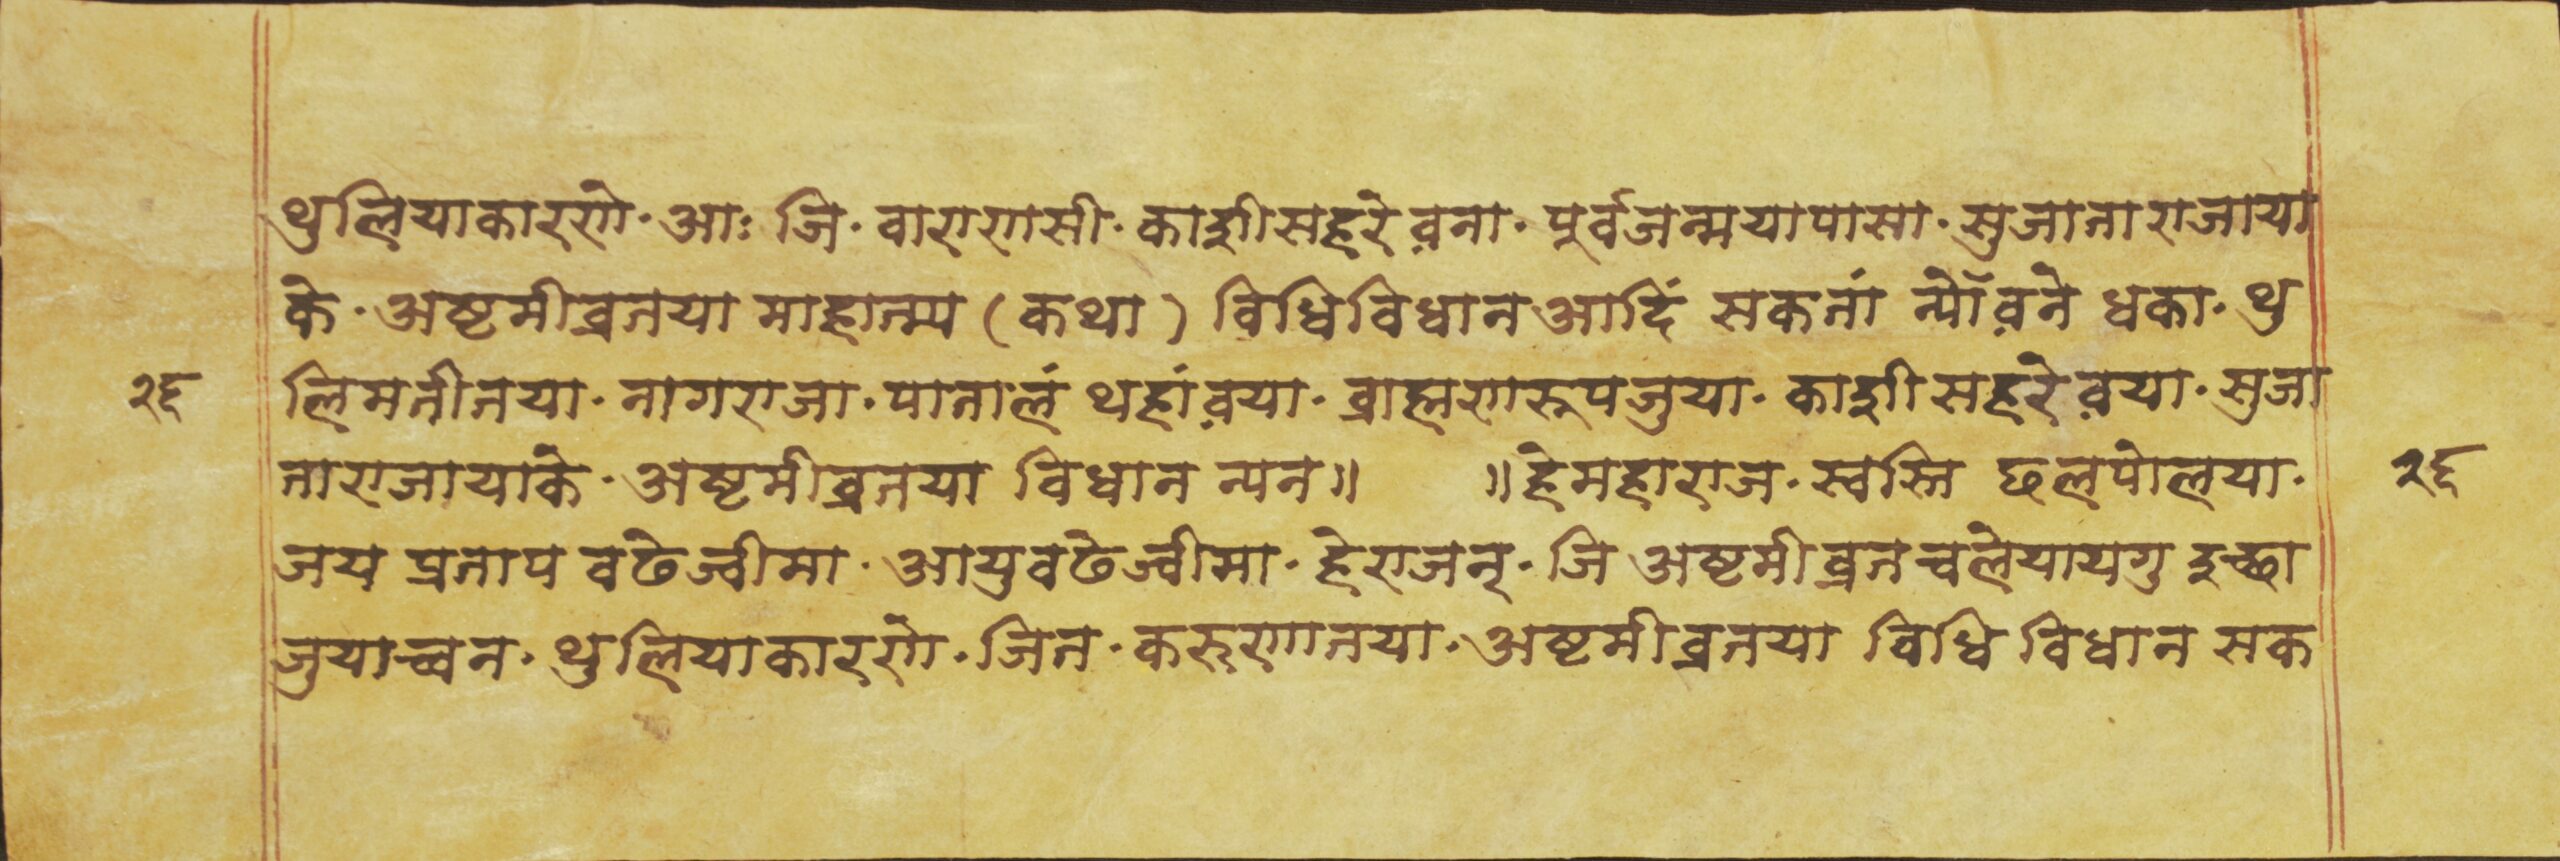 थुलियाकारणे· आः जि· वाराणसी· काशीसहरे व़ना· पूर्वजन्मयापासा· सुजाता राजाया
के· अष्टमीव्रतया माहात्म्य (कथा) विधिविधान आदिं सकतां न्यॉव़ने धका· थु
२६ लिमतीतया· नागराजा· पातालं थहांव़या· ब्राह्मणरूपजुया· काशीसहरे व़या· सुजा
ताराजायाके· अष्टमीव्रतया विधान न्यन॥ ॥हेमहाराज· स्वस्ति छलपोलया· २६
जय प्रताप वढेज्वीमा· आयुवढेज्वीमा· हेराजन्· जि अष्टमीव्रत चलेयायगु इच्छा
जुयाच्वन· थुलियाकारणे· जित· करूणातया· अष्टमीव्रतया विधि विधान सक